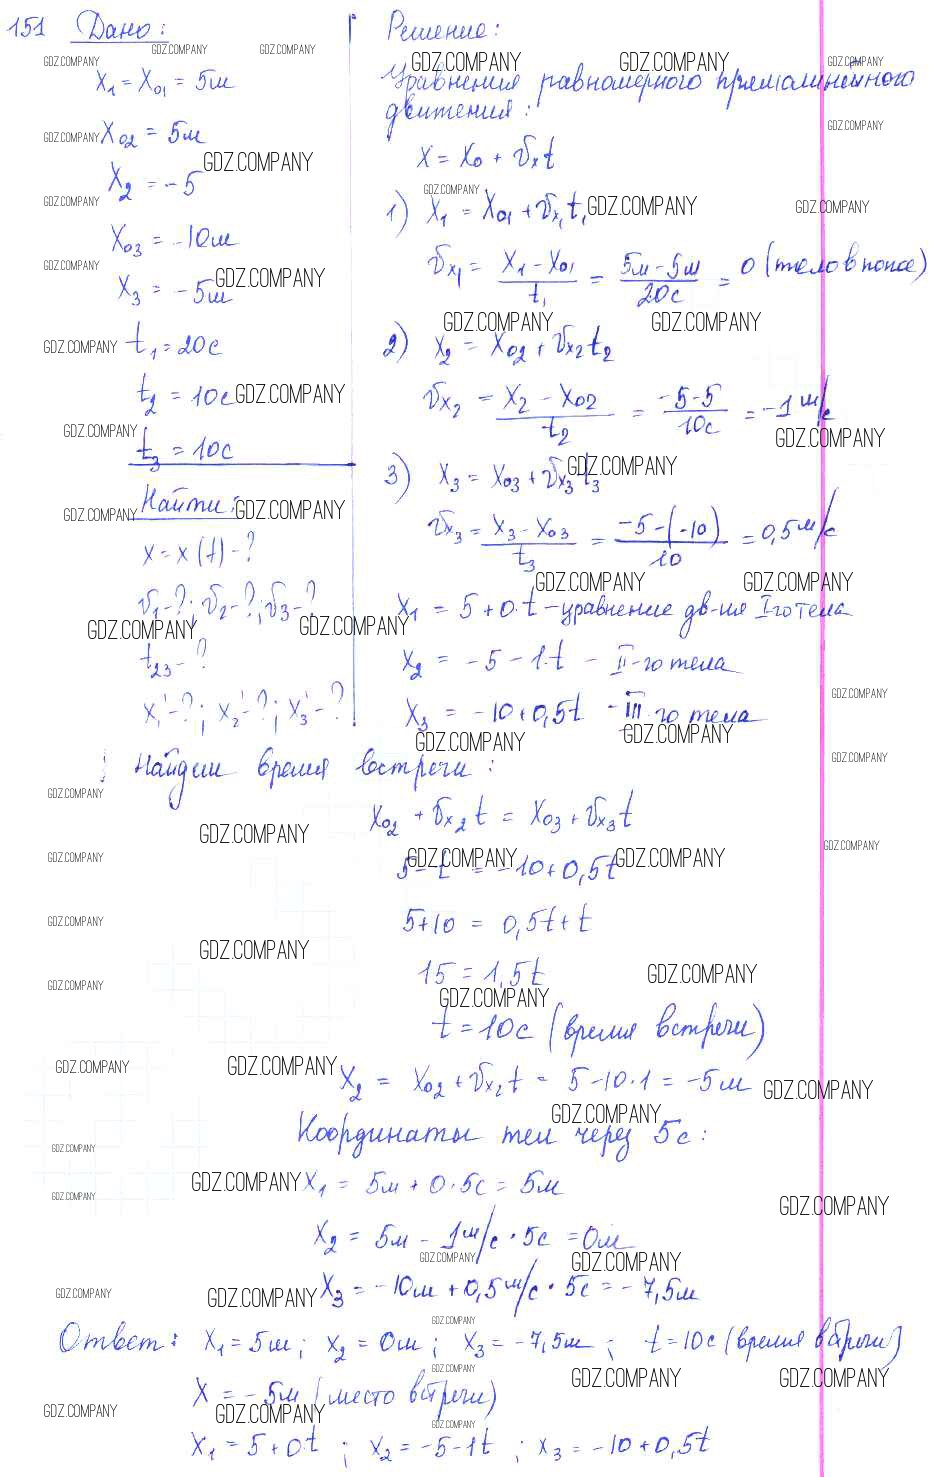 151 Дано:
X₁ = X₀₁ = 5м
X₀₂ = 5м
X₂ = -5
X₀₃ = -10м
X₃ = -5м
t₁ = 20с
t₂ = 10с
t₃ = 10с
Найти:
x = x(t) - ?
v₁ - ?; v₂ - ?; v₃ - ?
t₂₃ - ?
x₁' - ?; x₂' - ?; x₃' - ?
Решение:
Уравнения равномерного прямолинейного
движения:
X = X₀ + vₓt
1) X₁ = X₀₁ + vₓ₁t₁
vₓ₁ = (X₁ - X₀₁)/t₁ = (5м - 5м)/20с = 0 (тело в покое)
2) X₂ = X₀₂ + vₓ₂t₂
vₓ₂ = (X₂ - X₀₂)/t₂ = (-5-5)/10с = -1 м/с
3) X₃ = X₀₃ + vₓ₃t₃
vₓ₃ = (X₃ - X₀₃)/t₃ = (-5-(-10))/10 = 0,5 м/с
X₁ = 5 + 0·t - уравнение дв-ия I-го тела
X₂ = -5 - 1·t - II-го тела
X₃ = -10 + 0,5t - III-го тела
Найдем время встречи:
X₀₂ + vₓ₂t = X₀₃ + vₓ₃t
5 - t = -10 + 0,5t
5 + 10 = 0,5t + t
15 = 1,5t
t = 10с (время встречи)
X₂ = X₀₂ + vₓ₂t = 5 - 10·1 = -5м
Координаты тел через 5с:
X₁ = 5м + 0·5с = 5м
X₂ = 5м - 1м/с · 5с = 0м
X₃ = -10м + 0,5м/с · 5с = -7,5м
Ответ: X₁ = 5м; X₂ = 0м; X₃ = -7,5м; t = 10с (время встречи)
X = -5м (место встречи)
X₁ = 5 + 0·t; X₂ = -5 - 1t; X₃ = -10 + 0,5t
GDZ.COMPANY